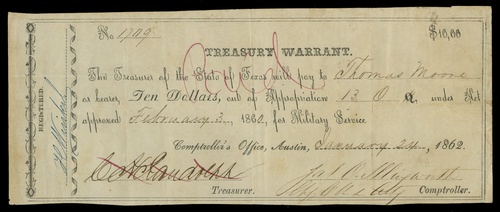 No 1749 $10,00
TREASURY WARRANT.
The Treasurer of the State of Texas will pay to Thomas Moore
or bearer, Ten Dollars, out of Appropriation 13.0 under Act
approved February 3, 1862, for Military Service
Comptroller's Office, Austin, January 24, 1862.
REGISTERED.
C. H. Randolph
Treasurer. Comptroller.
Paid